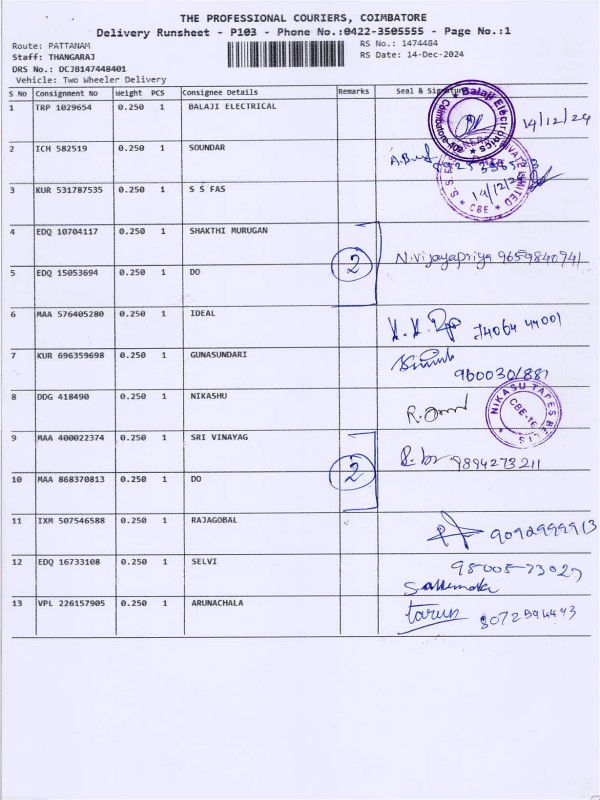 THE PROFESSIONAL COURIERS, COIMBATORE
Delivery Runsheet - P103 - Phone No.:0422-3505555 - Page No.:1
Route: PATTANAM RS No.: 1474484
Staff: THANGARAJ RS Date: 14-Dec-2024
DRS No.: DCJB147448401
Vehicle: Two Wheeler Delivery
S No Consignment No Weight PCS Consignee Details Remarks Seal & Signature
1 TRP 1029654 0.250 1 BALAJI ELECTRICAL 14/12/24
2 ICH 582519 0.250 1 SOUNDAR
3 KUR 531787535 0.250 1 S S FAS 14/12/24 CBE
4 EDQ 10704117 0.250 1 SHAKTHI MURUGAN
2 N.vijayapriya 9659840941
5 EDQ 15053694 0.250 1 DO
6 MAA 576405280 0.250 1 IDEAL
7 KUR 696359698 0.250 1 GUNASUNDARI
8 DDG 418490 0.250 1 NIKASHU NIKASU TAPES CBE-16
9 MAA 400022374 0.250 1 SRI VINAYAG
2 9894273211
10 MAA 868370813 0.250 1 DO
11 IXM 507546588 0.250 1 RAJAGOBAL 9092999913
12 EDQ 16733108 0.250 1 SELVI
13 VPL 226157905 0.250 1 ARUNACHALA tarun